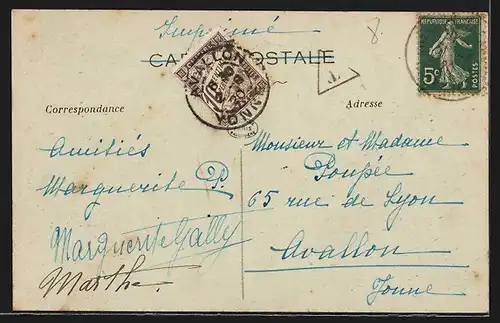 Imprimé
8
CARTE POSTALE
RÉPUBLIQUE FRANÇAISE
5c
POSTES
AVALLON
YONNE
T
Correspondance
Adresse
Amitiés
Marguerite P.
Marguerite Gally
Marthe
Monsieur et Madame
Poupée
65 rue de Lyon
Avallon
Yonne